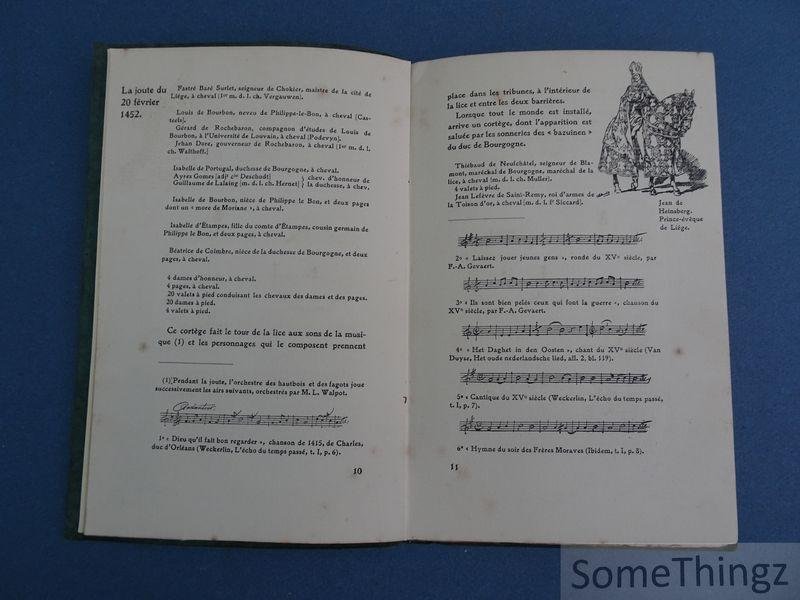 La joute du
20 février
1452.
Fastré Baré Surlet, seigneur de Chokier, maistre de la cité de
Liége, à cheval (1er m. d. l. ch. Vergauwen).
Louis de Bourbon, neveu de Philippe-le-Bon, à cheval (Cas-
teels).
Gérard de Rochebaron, compagnon d'études de Louis de
Bourbon, à l'Université de Louvain, à cheval (Podevyn).
Jehan Dore, gouverneur de Rochebaron, à cheval (1er m. d. l.
ch. Walthoff.)
Isabelle de Portugal, duchesse de Bourgogne, à cheval.
Ayres Gomes (adjt Deschodt) } chev. d'honneur de
Guillaume de Lalaing (m. d. l. ch. Hernet) } la duchesse, à chev.
Isabelle de Bourbon, nièce de Philippe le Bon, et deux pages
dont un « more de Moriane », à cheval.
Isabelle d'Étampes, fille du comte d'Étampes, cousin germain de
Philippe le Bon, et deux pages, à cheval.
Béatrice de Coimbre, nièce de la duchesse de Bourgogne, et deux
pages, à cheval.
4 dames d'honneur, à cheval.
4 pages, à cheval.
20 valets à pied conduisant les chevaux des dames et des pages.
20 dames à pied.
4 valets à pied.
Ce cortège fait le tour de la lice aux sons de la musi-
que (1) et les personnages qui le composent prennent
(1) Pendant la joute, l'orchestre des hautbois et des fagots joue
successivement les airs suivants, orchestrés par M. L. Walpot.
Andantino
1º « Dieu qu'il fait bon regarder », chanson de 1415, de Charles,
duc d'Orléans (Weckerlin, L'écho du temps passé, t. I, p. 6).
10
place dans les tribunes, à l'intérieur de
la lice et entre les deux barrières.
Lorsque tout le monde est installé,
arrive un cortège, dont l'apparition est
saluée par les sonneries des « bazuinen »
du duc de Bourgogne.
Thiébaud de Neufchâtel, seigneur de Bla-
mont, maréchal de Bourgogne, maréchal de la
lice, à cheval (m. d. l. ch. Muller).
4 valets à pied.
Jean Lefèvre de Saint-Remy, roi d'armes de
la Toison d'or, à cheval (m. d. l. f Siccard).
Jean de
Heinsberg.
Prince-évêque
de Liége.
2º « Laissez jouer jeunes gens », ronde du XVe siècle, par
F.-A. Gevaert.
3º « Ils sont bien pelés ceux qui font la guerre », chanson du
XVe siècle, par F.-A. Gevaert.
4º « Het Daghet in den Oosten », chant du XVe siècle (Van
Duyse, Het oude nederlandsche lied, afl. 2, bl. 119).
5º « Cantique du XVe siècle (Weckerlin, L'écho du temps passé,
t. I, p. 7).
6º « Hymne du soir des Frères Moraves (Ibidem, t. I, p. 3).
11
SomeThingz